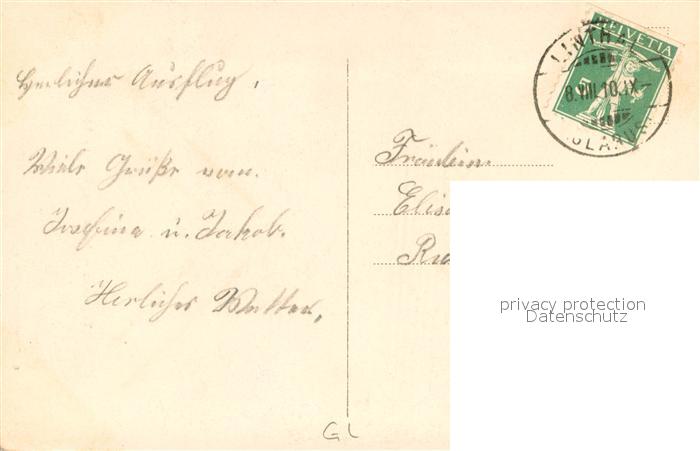 Herlicher Ausflug.
Viele Grüße von
Josefina u. Jakob.
Herliches Wetter.
Fräulein
Elis
Ru
HELVETIA
5
LINTH
8.VIII.10.IX-
GLARUS
GL
privacy protection
Datenschutz